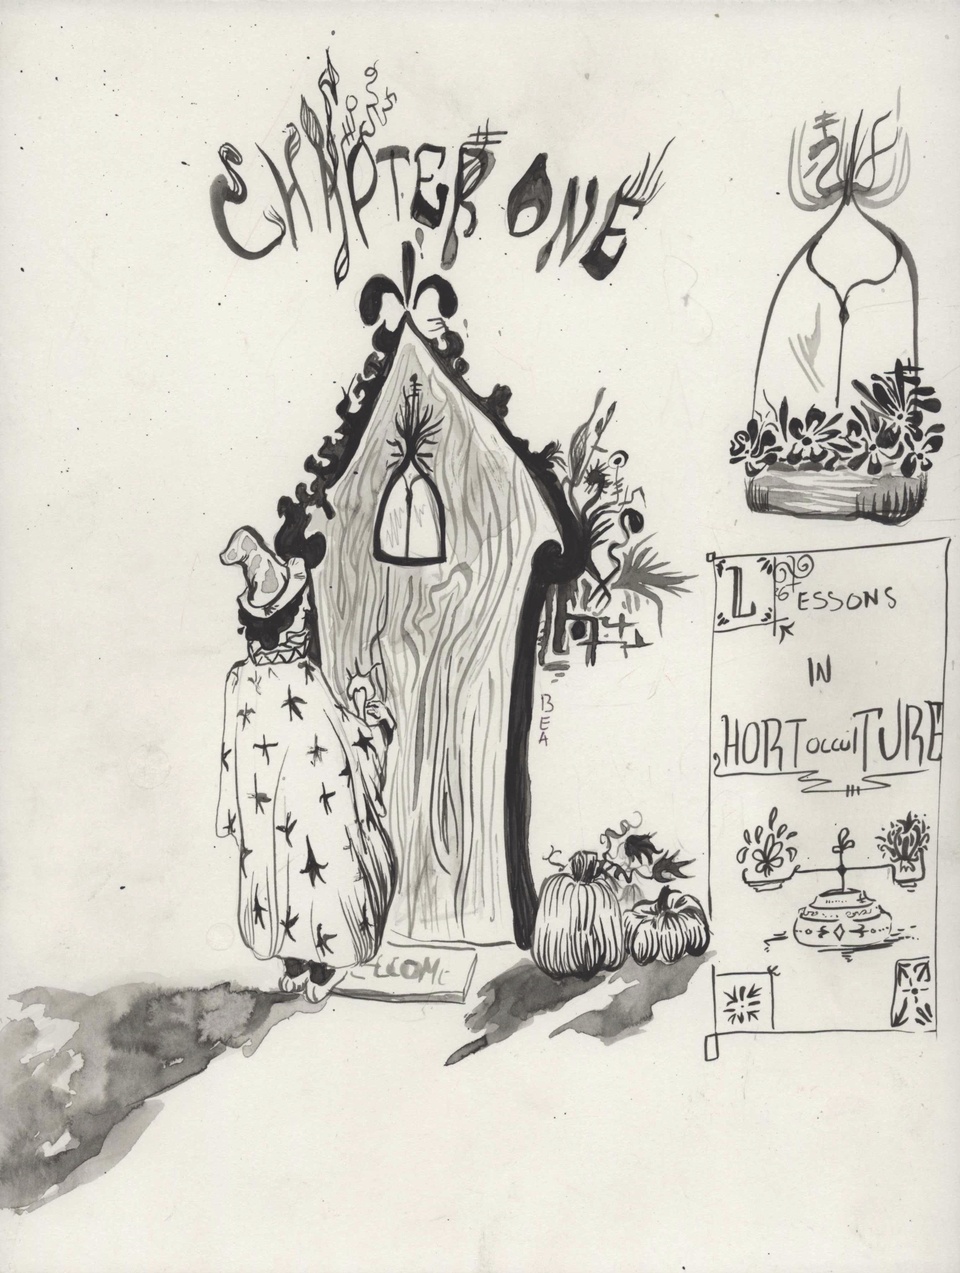 CHAPTER ONE
LESSONS
IN
HORTOCCULTURE
BEA
WELCOME